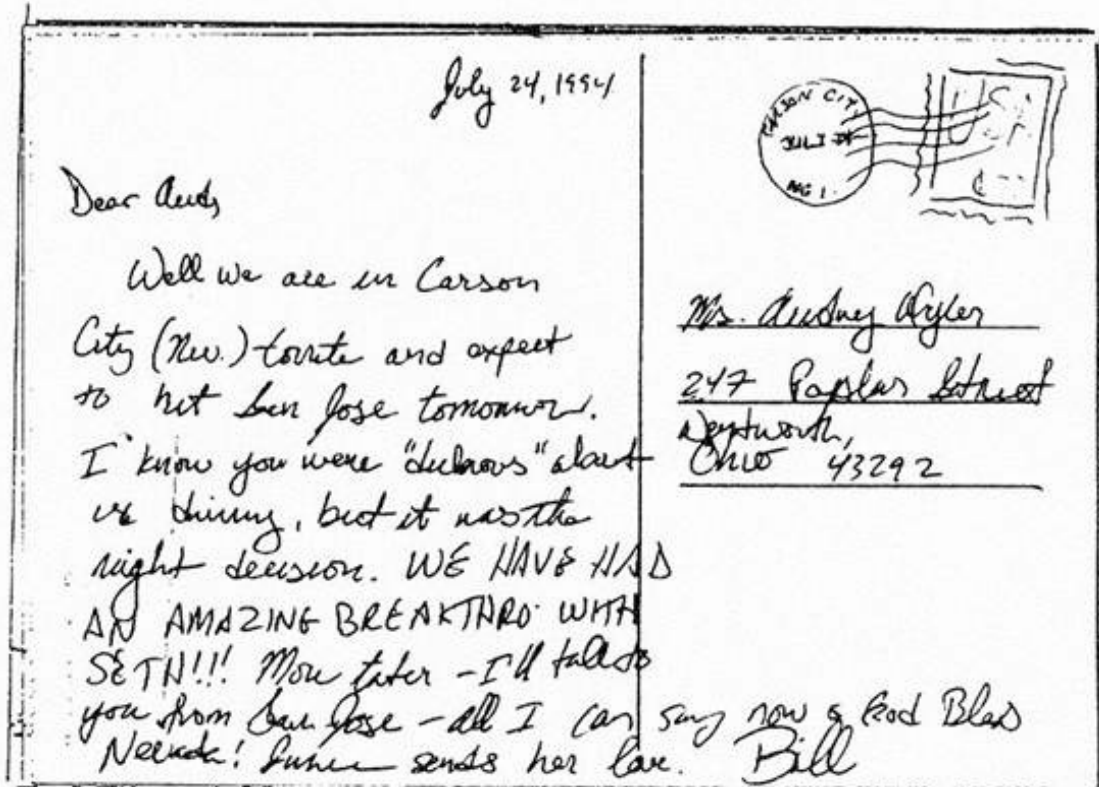 July 24, 1994
Dear Aud,
Well we are in Carson
City (Nev.) tonite and expect
to hit San Jose tomorrow.
I know you were "dubious" about
us driving, but it was the
right decision. WE HAVE HAD
AN AMAZING BREAKTHRO' WITH
SETH!!! More later - I'll talk to
you from San Jose - all I can say now is God Bless
Nevada! sends her love. Bill
CARSON CITY
JUL
Ms. Audrey Wyler
247 Poplar Street
Wentworth,
Ohio 43292